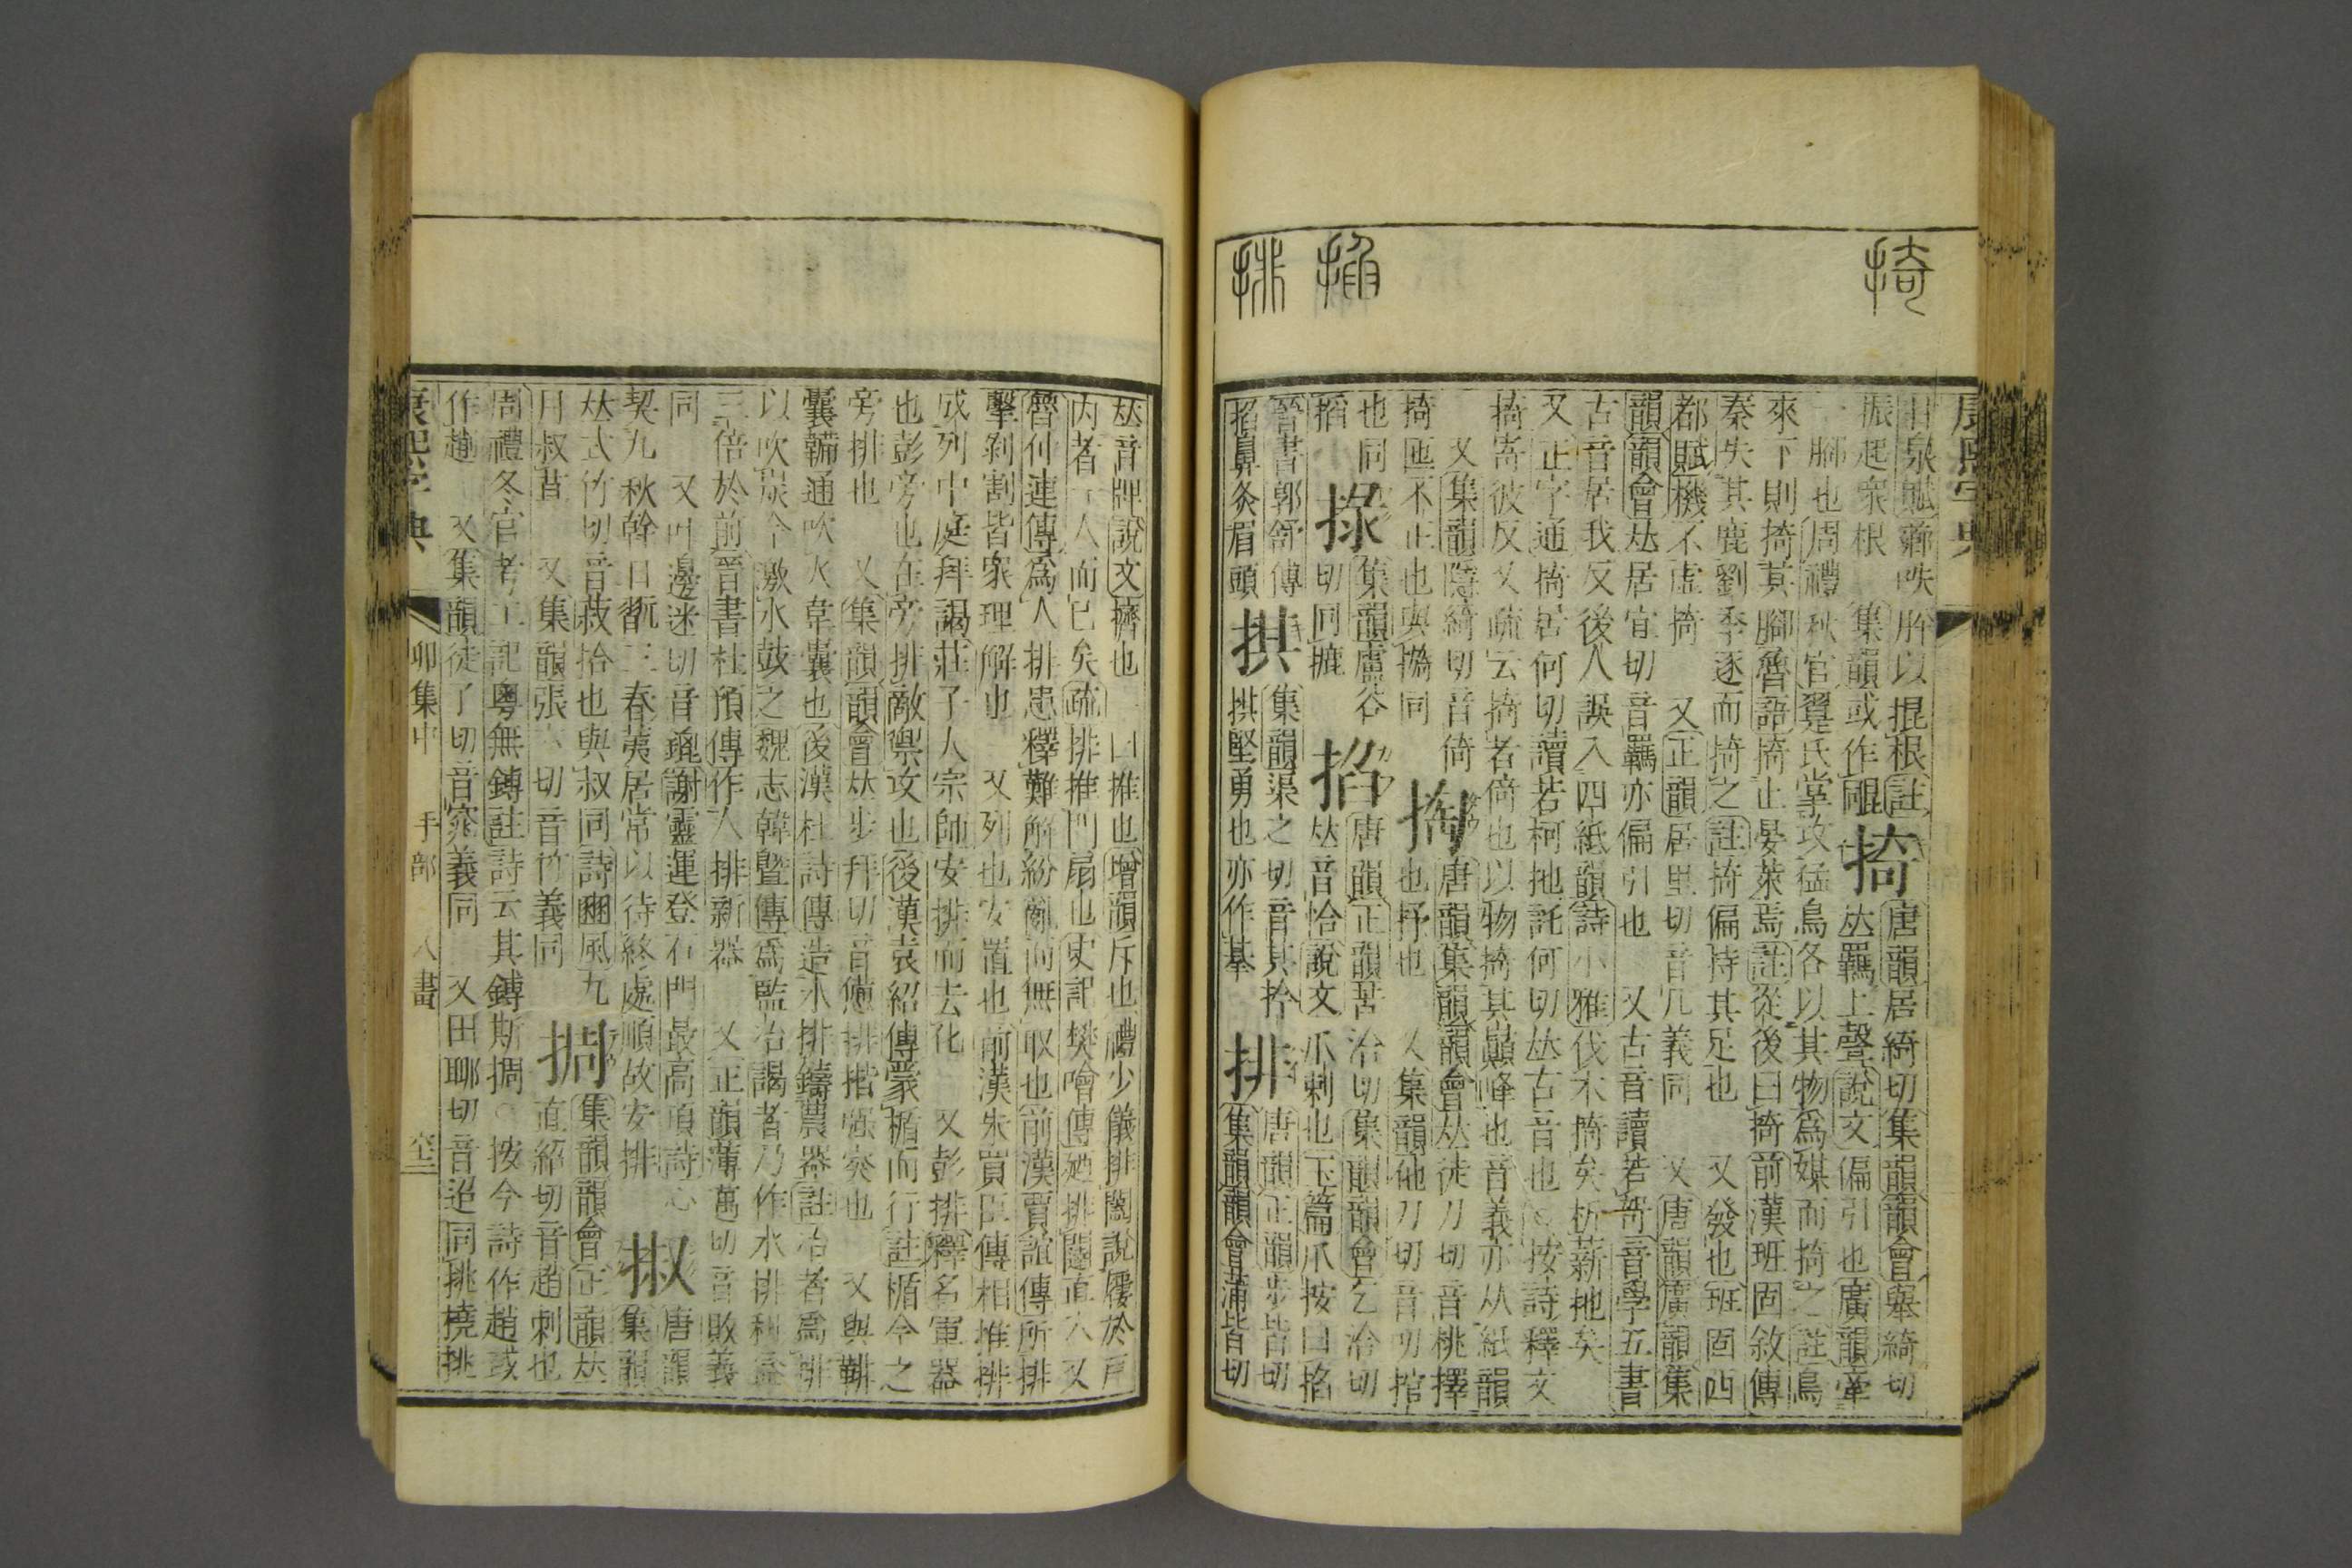 掎
掐
排
康熙字典
甘泉賦薌呹肸以掍根註
振起衆根　集韻或作䎽
掎
唐韻居綺切集韻韻會舉綺切
𠀤羈上聲說文偏引也廣韻牽
一腳也周禮秋官翨氏掌攻猛鳥各以其物爲媒而掎之註鳥
來下則掎其腳魯語掎止晏萊焉註從後曰掎前漢班固敘傳
秦失其鹿劉季逐而掎之註掎偏持其足也　又發也班固西
都賦機不虛掎　又正韻居里切音几義同　又唐韻廣韻集
韻韻會𠀤居宜切音羈亦偏引也　又古音讀若𫤗音學五書
古音居我反後人誤入四紙韻詩小雅伐木掎矣析薪扡矣
又正字通掎居何切讀若柯扡託何切𠀤古音也　按詩釋文
掎寄彼反又疏云掎者倚也以物掎其巔峰也音義亦从紙韻
又集韻隱綺切音倚
掎匜不正也與㩻同
掏
唐韻集韻韻會𠀤徒刀切音桃擇
也抒也　又集韻他刀切音叨掐
也同
搯
掾
集韻盧谷
切同摝
掐
唐韻正韻苦洽切集韻韻會乞洽切
𠀤音恰說文爪刺也玉篇爪按曰掐
晉書郭舒傳
掐鼻灸眉頭
掑
集韻渠之切音其拎
掑堅勇也亦作㨳
排
唐韻正韻步皆切
集韻韻會蒲皆切
𠀤音牌說文擠也　一曰推也增韻斥也禮少儀排闔說屨於戸
內者一人而已矣疏排推門扇也史記樊噲傳廼排闥直入又
魯仲連傳爲人排患釋難解紛亂而無取也前漢賈誼傳所排
擊剝割皆衆理解也　又列也安置也前漢朱買臣傳相推排
成列中庭拜謁莊子人宗師安排而去化　又彭排釋名軍器
也彭旁也在旁排敵禦攻也後漢袁紹傳蒙楯而行註楯今之
旁排也　又集韻韻會𠀤步拜切音憊排㨒强突也　又與韛
囊韛通吹火韋囊也後漢杜詩傳造水排鑄農器註冶者爲排
以吹炭今激水鼓之魏志韓曁傳爲監冶謁者乃作水排利益
三倍於前晉書杜預傳作人排新器　又正韻薄萬切音敗義
同　又叶邊迷切音𨾴謝靈運登石門最高頂詩心
契九秋幹目翫三春荑居常以待終處順故安排
掓
唐韻
集韻
𠀤式竹切音菽拾也與叔同詩豳風九
月叔苴　又集韻張六切音竹義同
掆
集韻韻會正韻𠀤
直紹切音趙刺也
周禮冬官考工記粵無鎛註詩云其鎛斯掆　按今詩作趙或
作趙　又集韻徒了切音窕義同　又田聊切音迢同挑撓挑
康熙字典
卯集中　手部　八畫